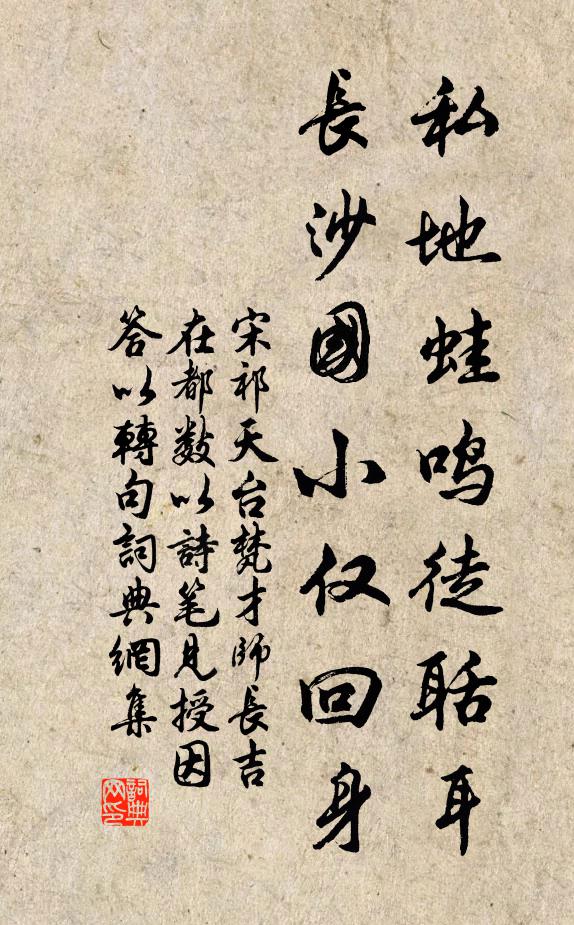 私地蛙鸣徒聒耳
長沙國小仅回身
宋祁天台梵才師長吉
在都數以詩笔見授因
答以轉句詞典網集
詞典网印